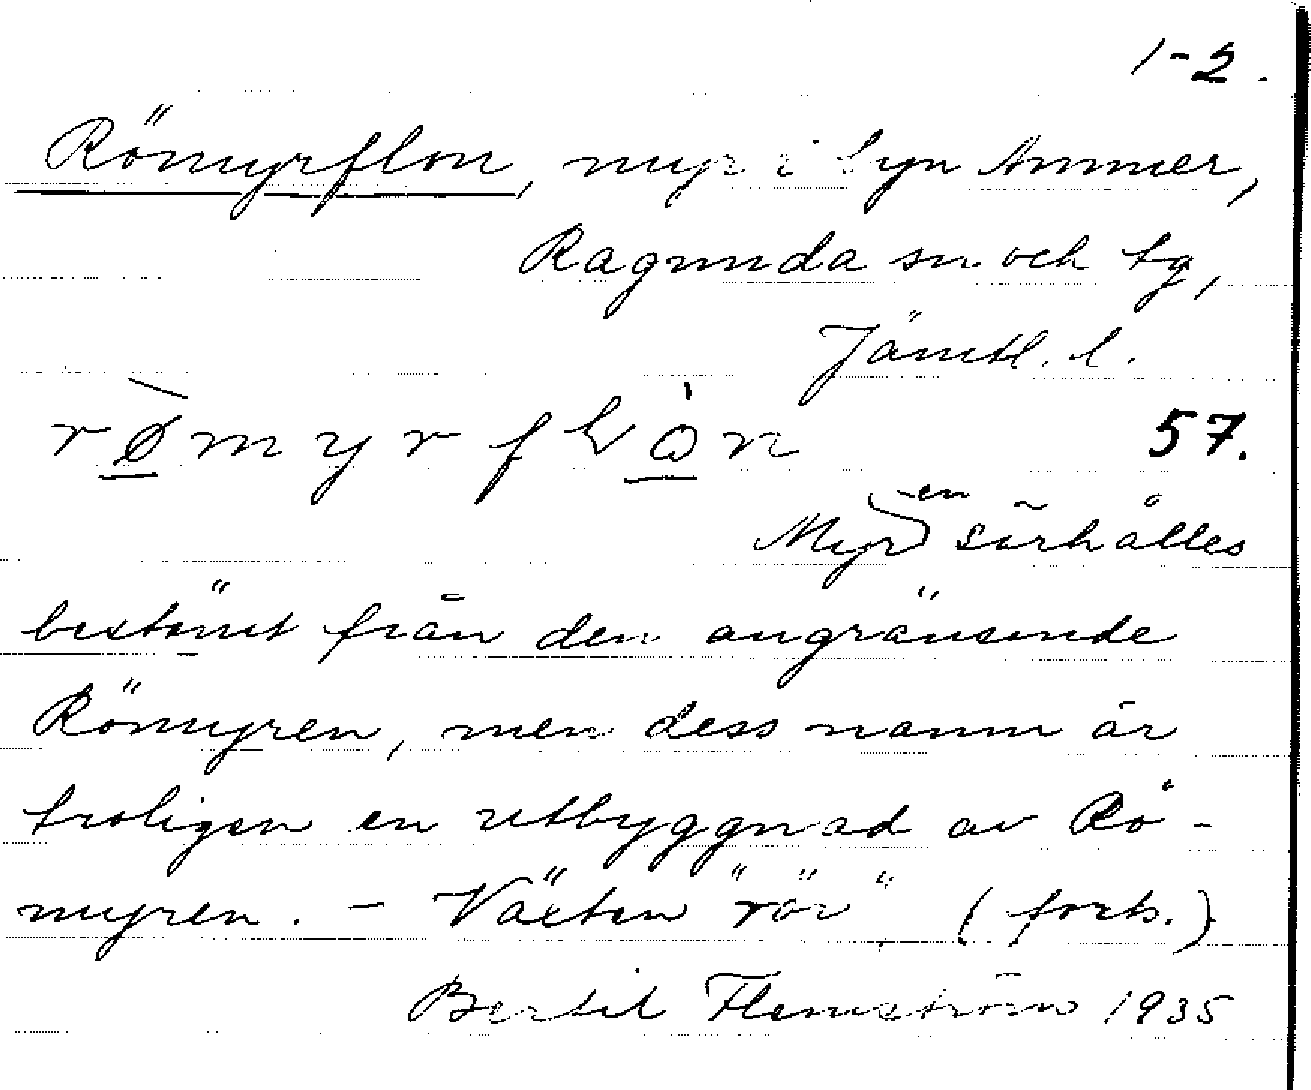 1-2.
Römyrflon, myr i byn Ammer,
Ragunda sn. och tg,
Jämtl. l.
57.
Myren särhålles
bestämt från den angränsande
Römyren, men dess namn är
troligen en utbyggnad av Rö-
myren. - Växten "rör" (forts.)
Bertil Flemström 1935